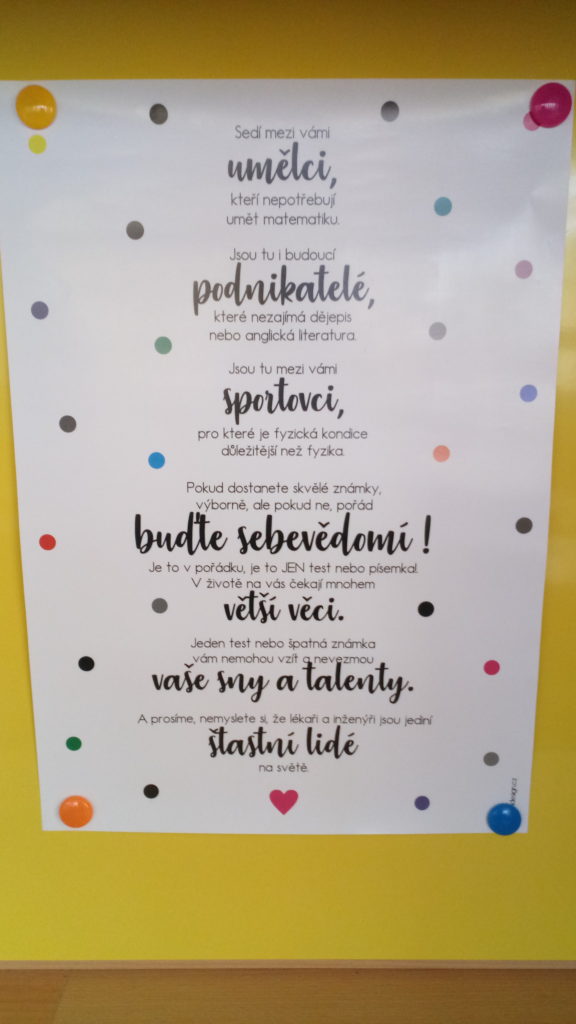 Sedí mezi vámi
umělci,
kteří nepotřebují
umět matematiku.
Jsou tu i budoucí
podnikatelé,
které nezajímá dějepis
nebo anglická literatura.
Jsou tu mezi vámi
sportovci,
pro které je fyzická kondice
důležitější než fyzika.
Pokud dostanete skvělé známky,
výborně, ale pokud ne, pořád
buďte sebevědomí !
Je to v pořádku, je to JEN test nebo písemka!
V životě na vás čekají mnohem
větší věci.
Jeden test nebo špatná známka
vám nemohou vzít a nevezmou
vaše sny a talenty.
A prosíme, nemyslete si, že lékaři a inženýři jsou jediní
štastní lidé
na světě.